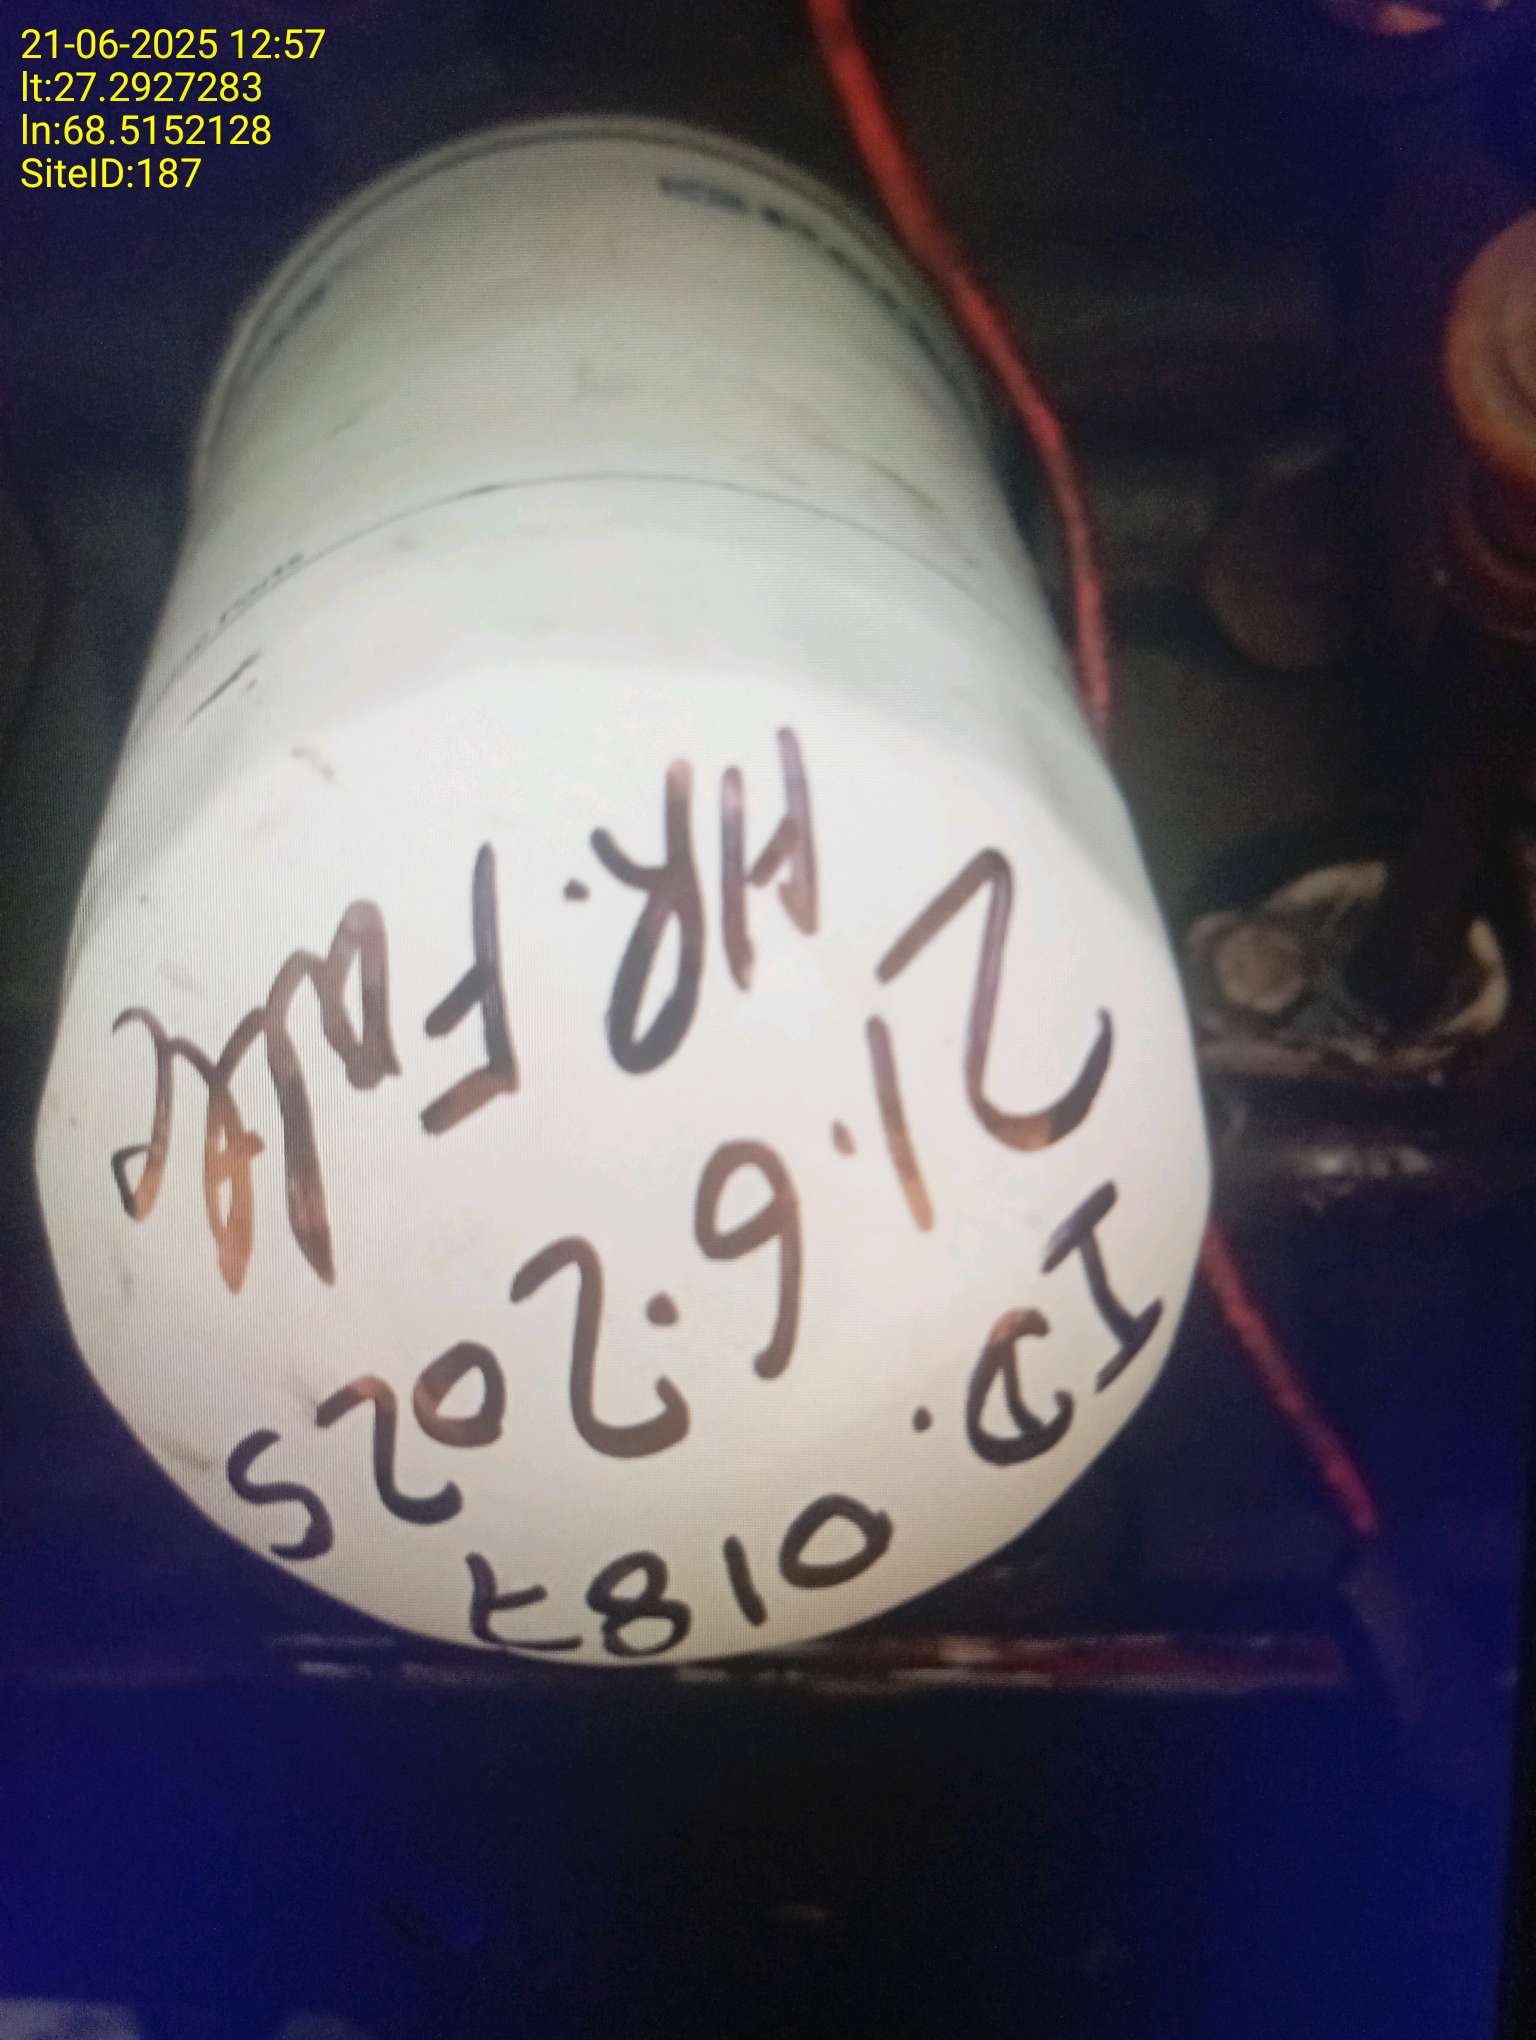 21-06-2025 12:57
lt:27.2927283
ln:68.5152128
SiteID:187
ID. 0187
21.6.2025
HR.